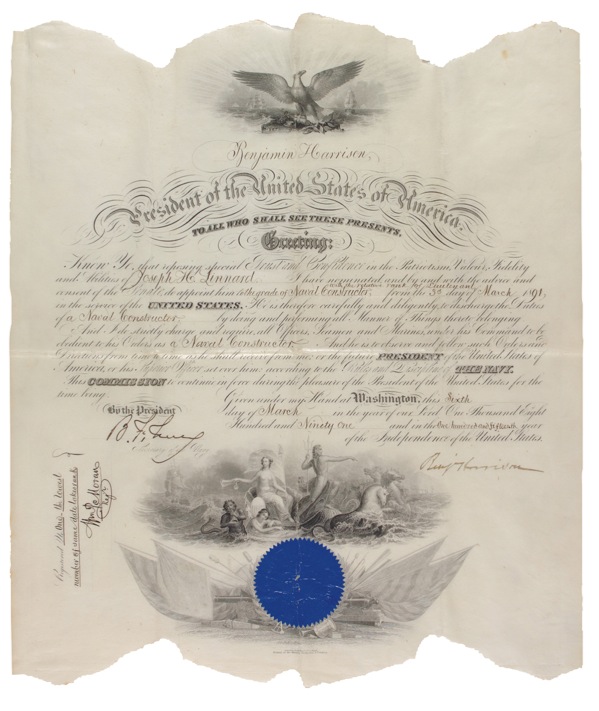 Benjamin Harrison,
President of the United States of America.
TO ALL WHO SHALL SEE THESE PRESENTS,
Greeting:
Know Ye, that reposing special Trust and Confidence in the Patriotism, Valour, Fidelity
and Abilities of Joseph H. Linnard I have nominated and by and with the advice and
with the relative rank of Lieutenant
consent of the Senate, do appoint him to the grade of Naval Constructor, from the 3d day of March 1891,
in the service of the UNITED STATES. He is therefore carefully and diligently to discharge the Duties
of a Naval Constructor by doing and performing all Manner of Things thereto belonging
And I do strictly charge and require all Officers, Seamen and Marines, under his Command to be
obedient to his Orders as a Naval Constructor And he is to observe and follow such Orders and
Directions from time to time as he shall receive from me, or the future PRESIDENT of the United States of
America, or his Superior Officer set over him, according to the Rules and Discipline of THE NAVY.
This COMMISSION to continue in force during the pleasure of the President of the United States for the
time being.
Given under my Hand at Washington, this Sixth
By the President
day of March in the year of our Lord One Thousand Eight
Hundred and Ninety One and in the One hundred and fifteenth year
of the Independence of the United States.
B. F. Tracy
Secretary of the Navy.
Benj Harrison
Registered No One - the lowest
number of same date takes rank
Wm P. Moran
Reg.